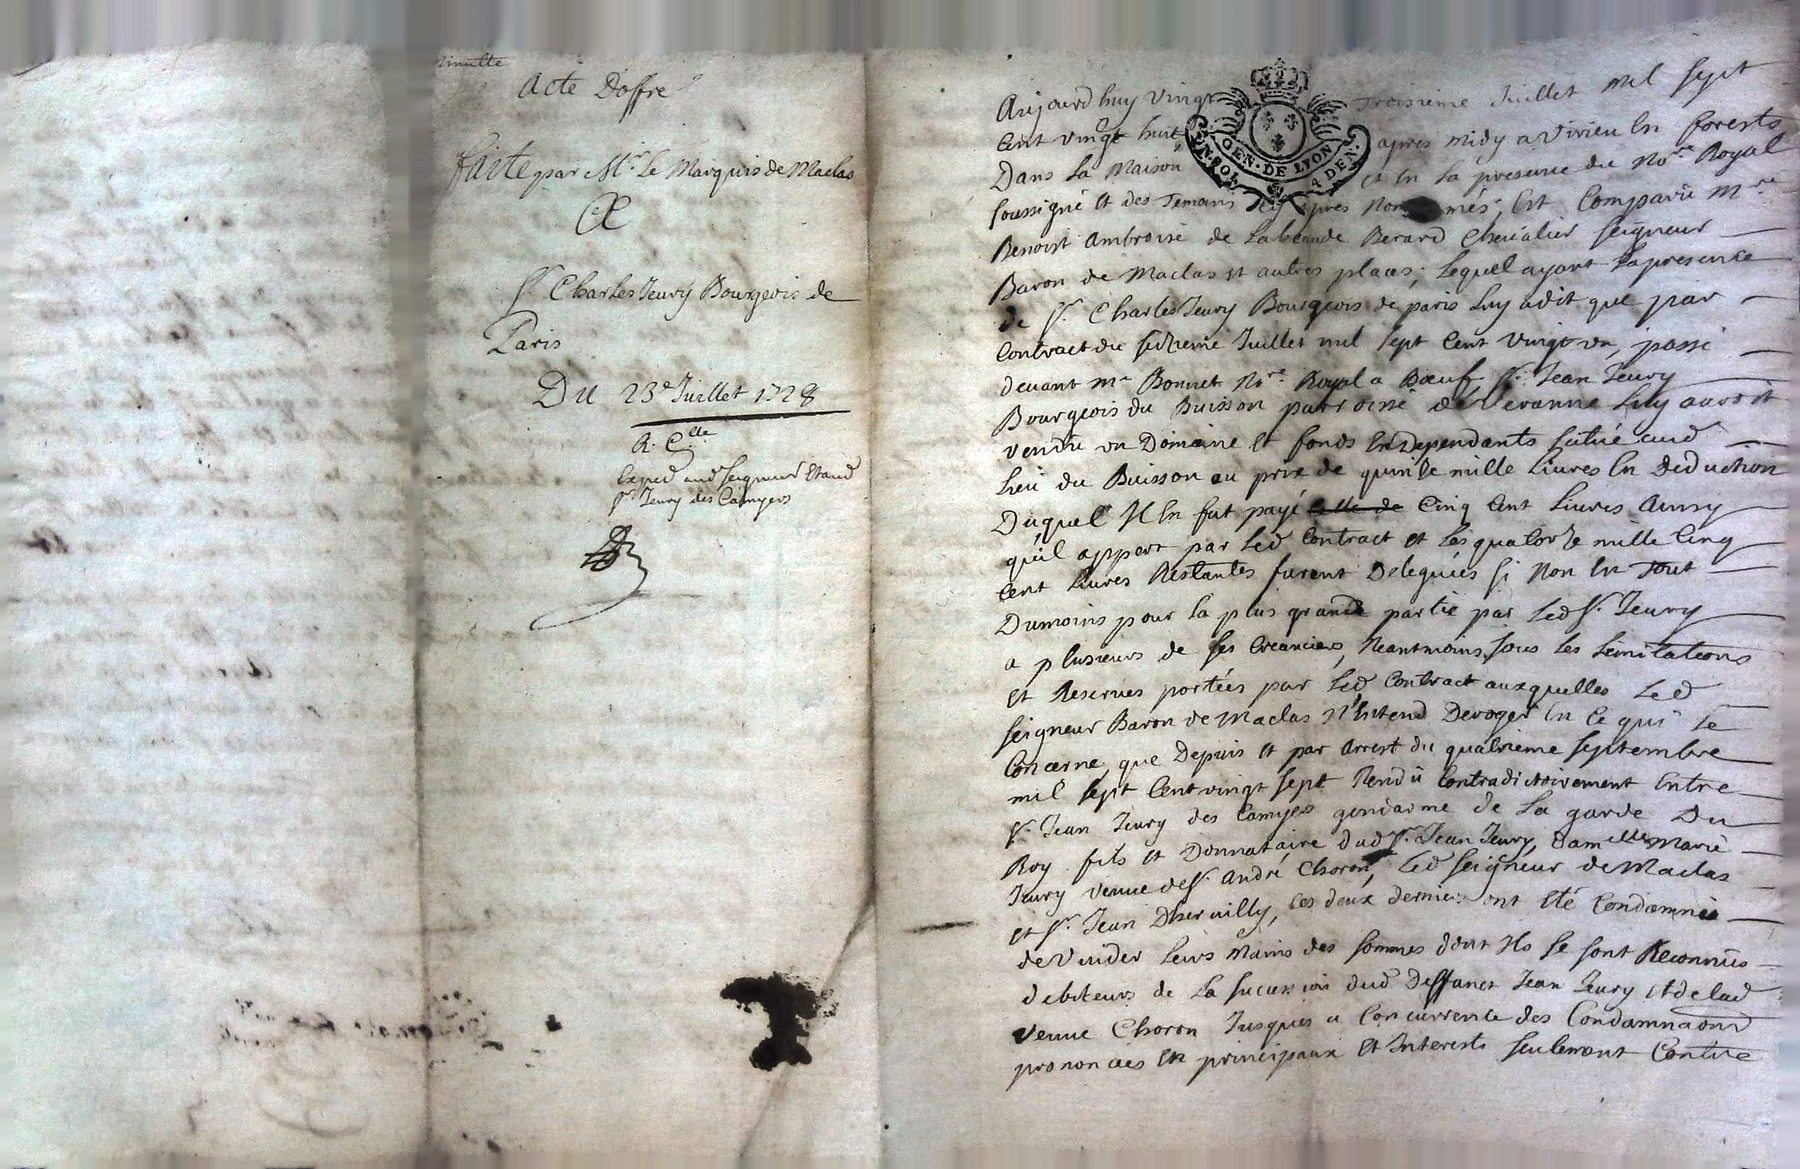 minutte
Acte Doffre
faite par Mr. Le Marquis de Maclas
A
Sr. Charles Jeury Bourgeois de
Paris
Du 23e Juillet 1728
R. Clle
Exped aud seigneur Et aud
Sr Jeury des Camyers
Aujourd'huy vingt troisieme Juillet mil sept
Cent vingt huit apres midy a Virieu En forests
Dans La Maison et En La presence du Nore Royal
soussigné Et des Temoins Cy apres Nommés, Est Comparu Mre
Benoist Ambroise de Labeaude Berard Chevalier seigneur
Baron de Maclas et autres places; Lequel ayant La presence
de Sr. Charles Jeury Bourgeois de paris Luy a dit que par
Contract du seizieme Juillet mil sept Cent vingt un, passé
devant Me Bonnet Nore Royal a Bœuf, Sr. Jean Jeury
Bourgeois du Buisson parroisse de Veranne Luy auroit
vendu un Domaine Et fonds En Dependants situé aud
Lieu du Buisson au prix de quinze mille Livres En Deduction
Duquel Il En fut payé celle de Cinq Cent Livres Ainsy
qu'il appert par Led Contract et Les quatorze mille Cinq
Cent Livres Restantes furent Deleguées si Non En Tout
Dumoins pour La plus grande partie par Led Sr. Jeury
a plusieurs de ses Creanciers, Neantmoins sous Les Limitations
Et Reserves portées par Led Contract auxquelles Led
seigneur Baron de Maclas N'Entend Deroger En Ce qui Le
Concerne, que Depuis Et par Arrest du quatrieme septembre
mil sept Cent vingt sept Rendu Contradictoirement Entre
Sr. Jean Jeury des Camyers gendarme de La garde Du
Roy fils et Donnataire dud Sr. Jean Jeury, Damelle Marie
Jeury veuve de Sr. André Choron, Led seigneur de Maclas
Et Sr. Jean Dhervilly, Ces deux derniers ont Eté Condamnés
de Vuider Leurs Mains des sommes dont Ils se sont Reconnus
debiteurs de La succession dud Deffunct Jean Jeury Et de Lad
veuve Choron Jusques a Concurrence des Condamnaons
prononcées En principaux Et Interests seulement Contre
GEN. DE LYON
4 DEN.